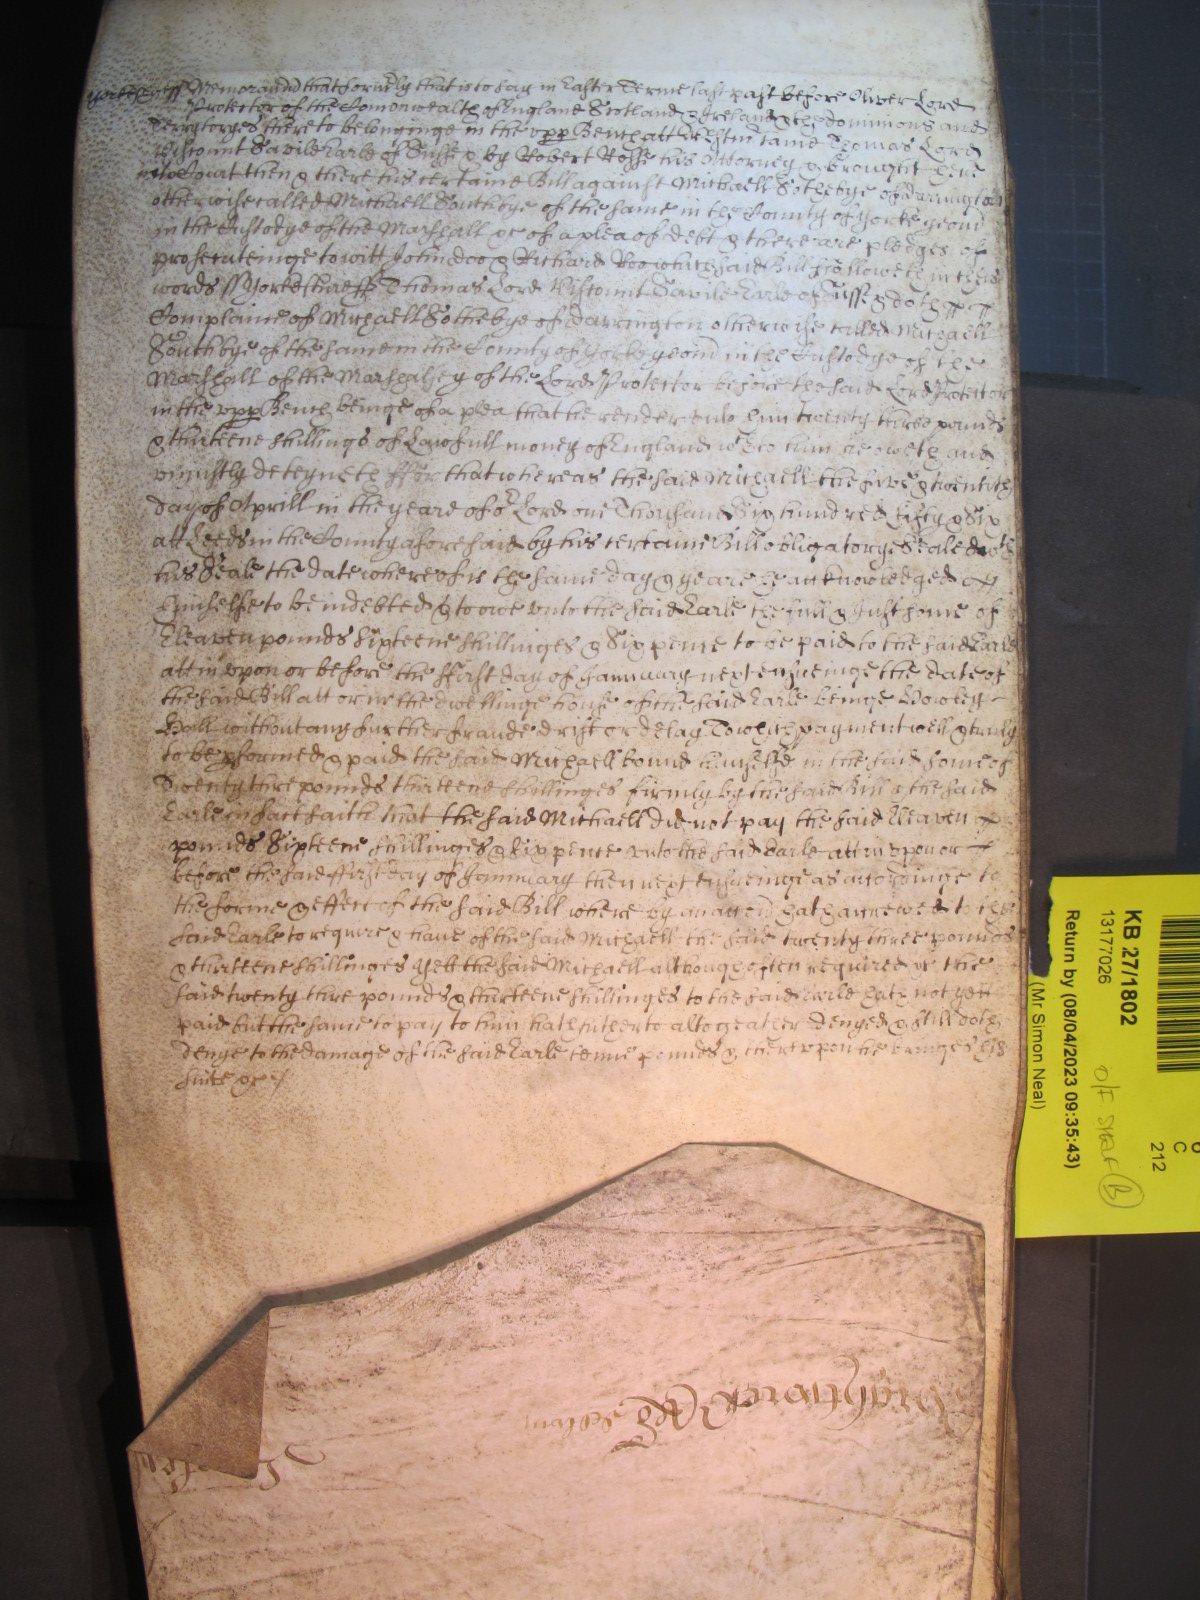 Yorkesheff Memorand that formly that is to say in Easter Terme last past before Oliver Lord
Protector of the Comonwealth of England Scotland & Ireland & the dominions and
Terrytoryes there to belonginge in the vpp Bench att Westm came Thomas Lord
Viscount Savile Earle of Sussex by Robert Rosse his Attorney & brought here
into Court then & there his certaine Bill against Michaell Sothebye of Darrington
otherwise called Michaell Southbye of the same in the County of Yorke gent
in the Custodye of the Marshall &c of a plea of debt & there are pledges of
prosecuteinge to witt John doo & Richard Roo which said Bill followeth in theis
words ss Yorkesheff Thomas Lord Viscount Savile Earle of Sussex doth
Complaine of Michaell Sothebye of Darrington otherwise called Michaell
Southbye of the same in the County of Yorke gent in the Custodye of the
Marshall of the Marshalsey of the Lord Protector before the said Lord Protector
in the vpp Bench beinge of a plea that he render vnto him twenty three pounds
& thirteene shillings of Lawfull money of England wch to him he oweth and
vniustly deteyneth ffor that whereas the said Michaell the five & twentith
day of Aprill in the yeare of or Lord one Thousand Six hundred fifty & Six
att Leeds in the County aforesaid by his certaine Bill obligatorye Sealed wth
his Seale the date whereof is the same day & yeare he acknowledged
himselfe to be indebted & to owe vnto the said Earle the full & Just some of
Eleaven pounds Sixteene shillinges & Six pence to be paid to the said Earle
att in vpon or before the ffirst day of January next ensueinge the date of
the said Bill att or in the dwellinge house of the said Earle beinge Howley
Hall without any further fraude drift or delay To which payment well & truly
to be pformed & paid the said Michaell bound himselfe in the said some of
Twenty three pounds thirteene shillinges firmly by the said Bill & the said
Earle in fact saith that the said Michaell did not pay the said Eleaven
pounds Sixteene shillinges & Six pence vnto the said Earle att in vpon or
before the said ffirst day of January then next ensueinge as accordinge to
the forme & effect of the said Bill where by an accon hath accrewed to the
said Earle to require & have of the said Michaell the said twenty three pounds
& thirteene shillinges Yett the said Michaell although often required &c the
said twenty three pounds & thirteene shillinges to the said Earle hath not yett
paid but the same to pay to him hath hitherto altogeather denyed & still doth
denye to the damage of the said Earle tenne pounds & therevpon he bringes his
suite &c
KB 27/1802
13177026
Return by (08/04/2023 09:35:43)
(Mr Simon Neal)
O/F SHELF B
C
212